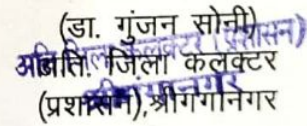 (डा. गुंजन सोनी)
अति. जिला कलक्टर
(प्रशासन), श्रीगंगानगर